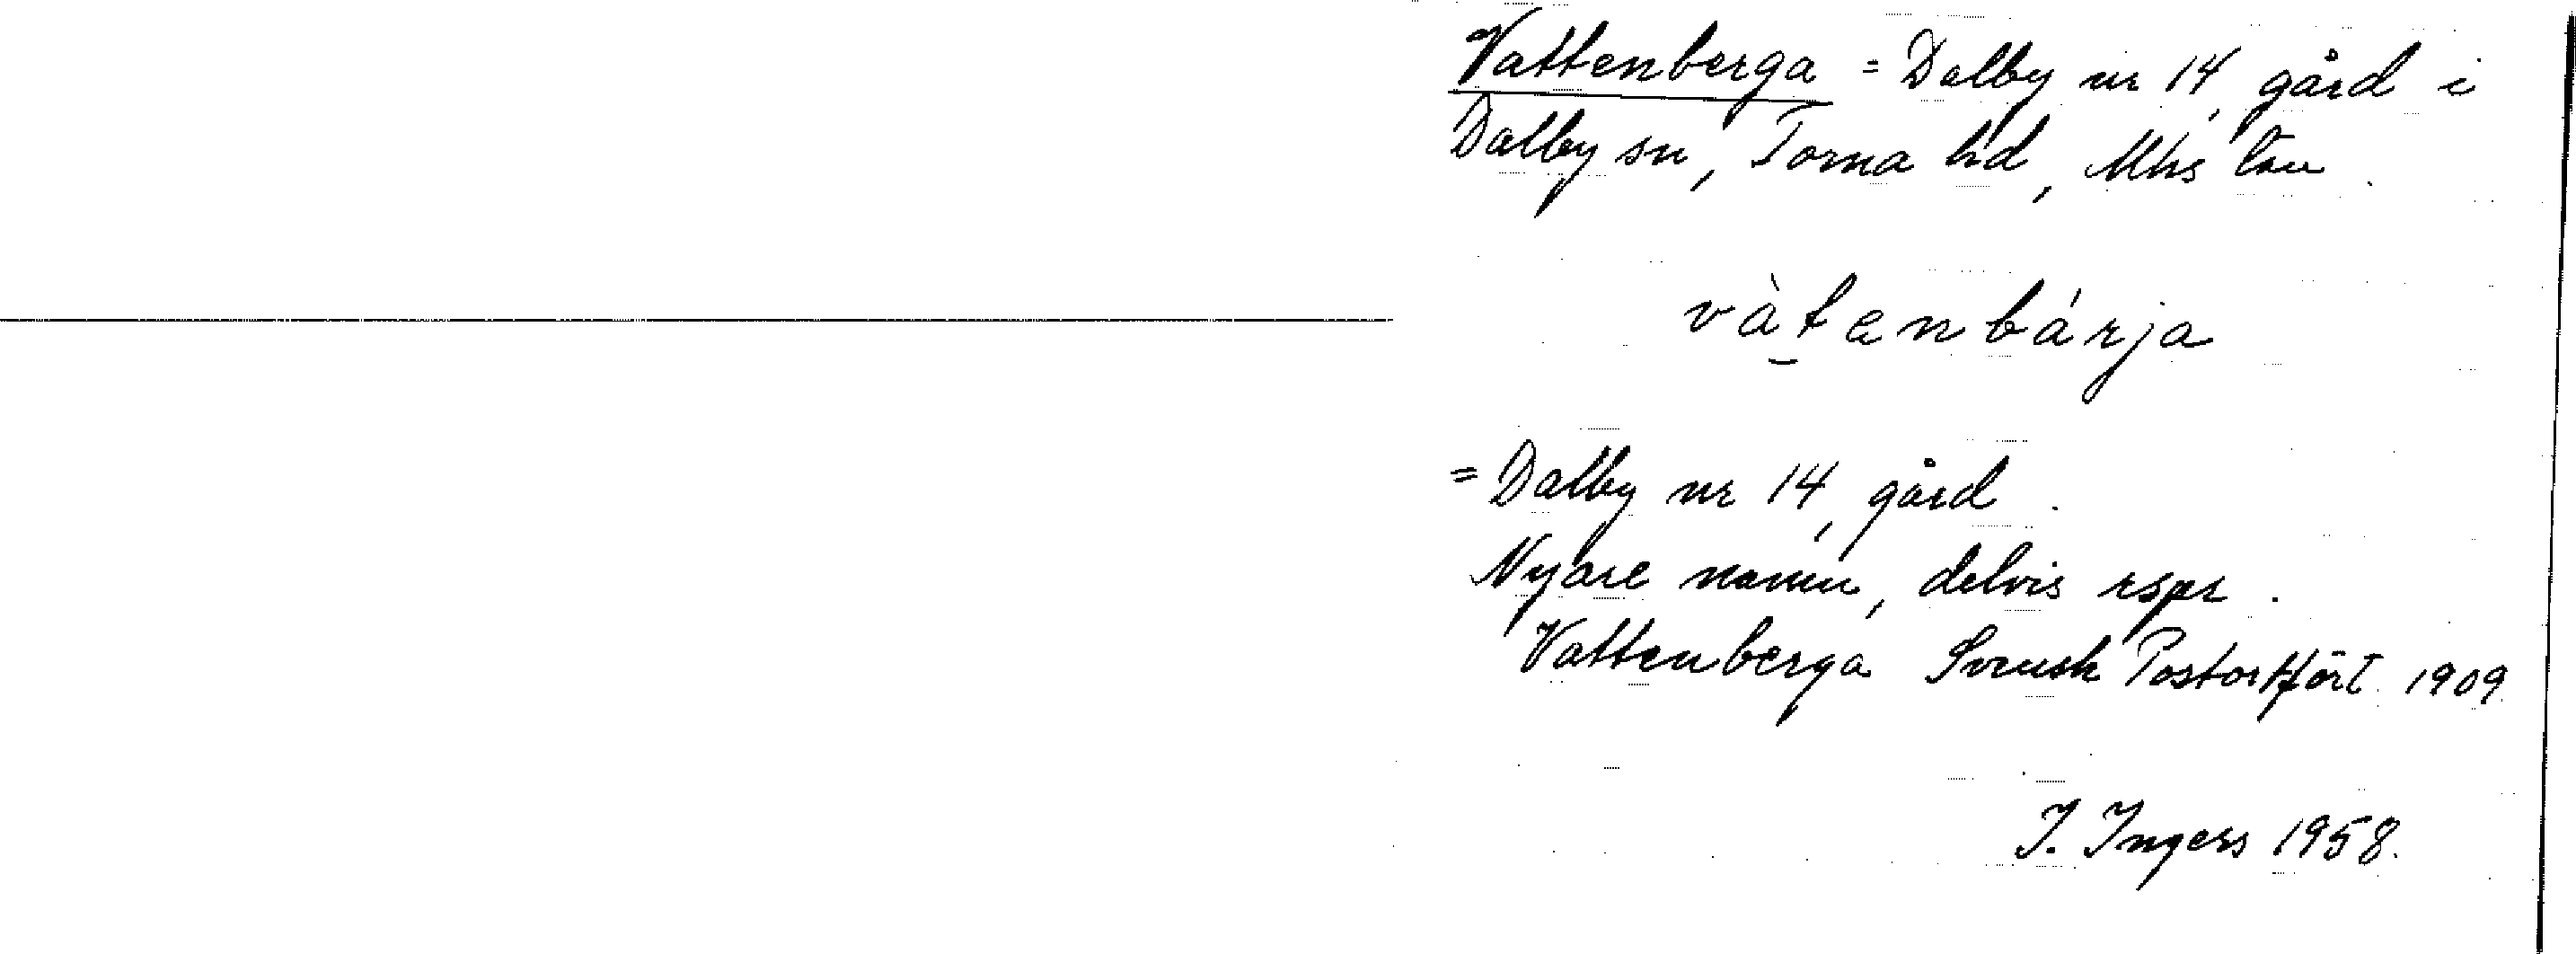 Vattenberga = Dalby nr 14, gård i
Dalby sn, Torna hd, Mhs län.
vàtenbárja
= Dalby nr 14, gård.
Nyare namn, delvis rspr.
Vattenberga Svensk Postortfört. 1909
I. Ingers 1958.